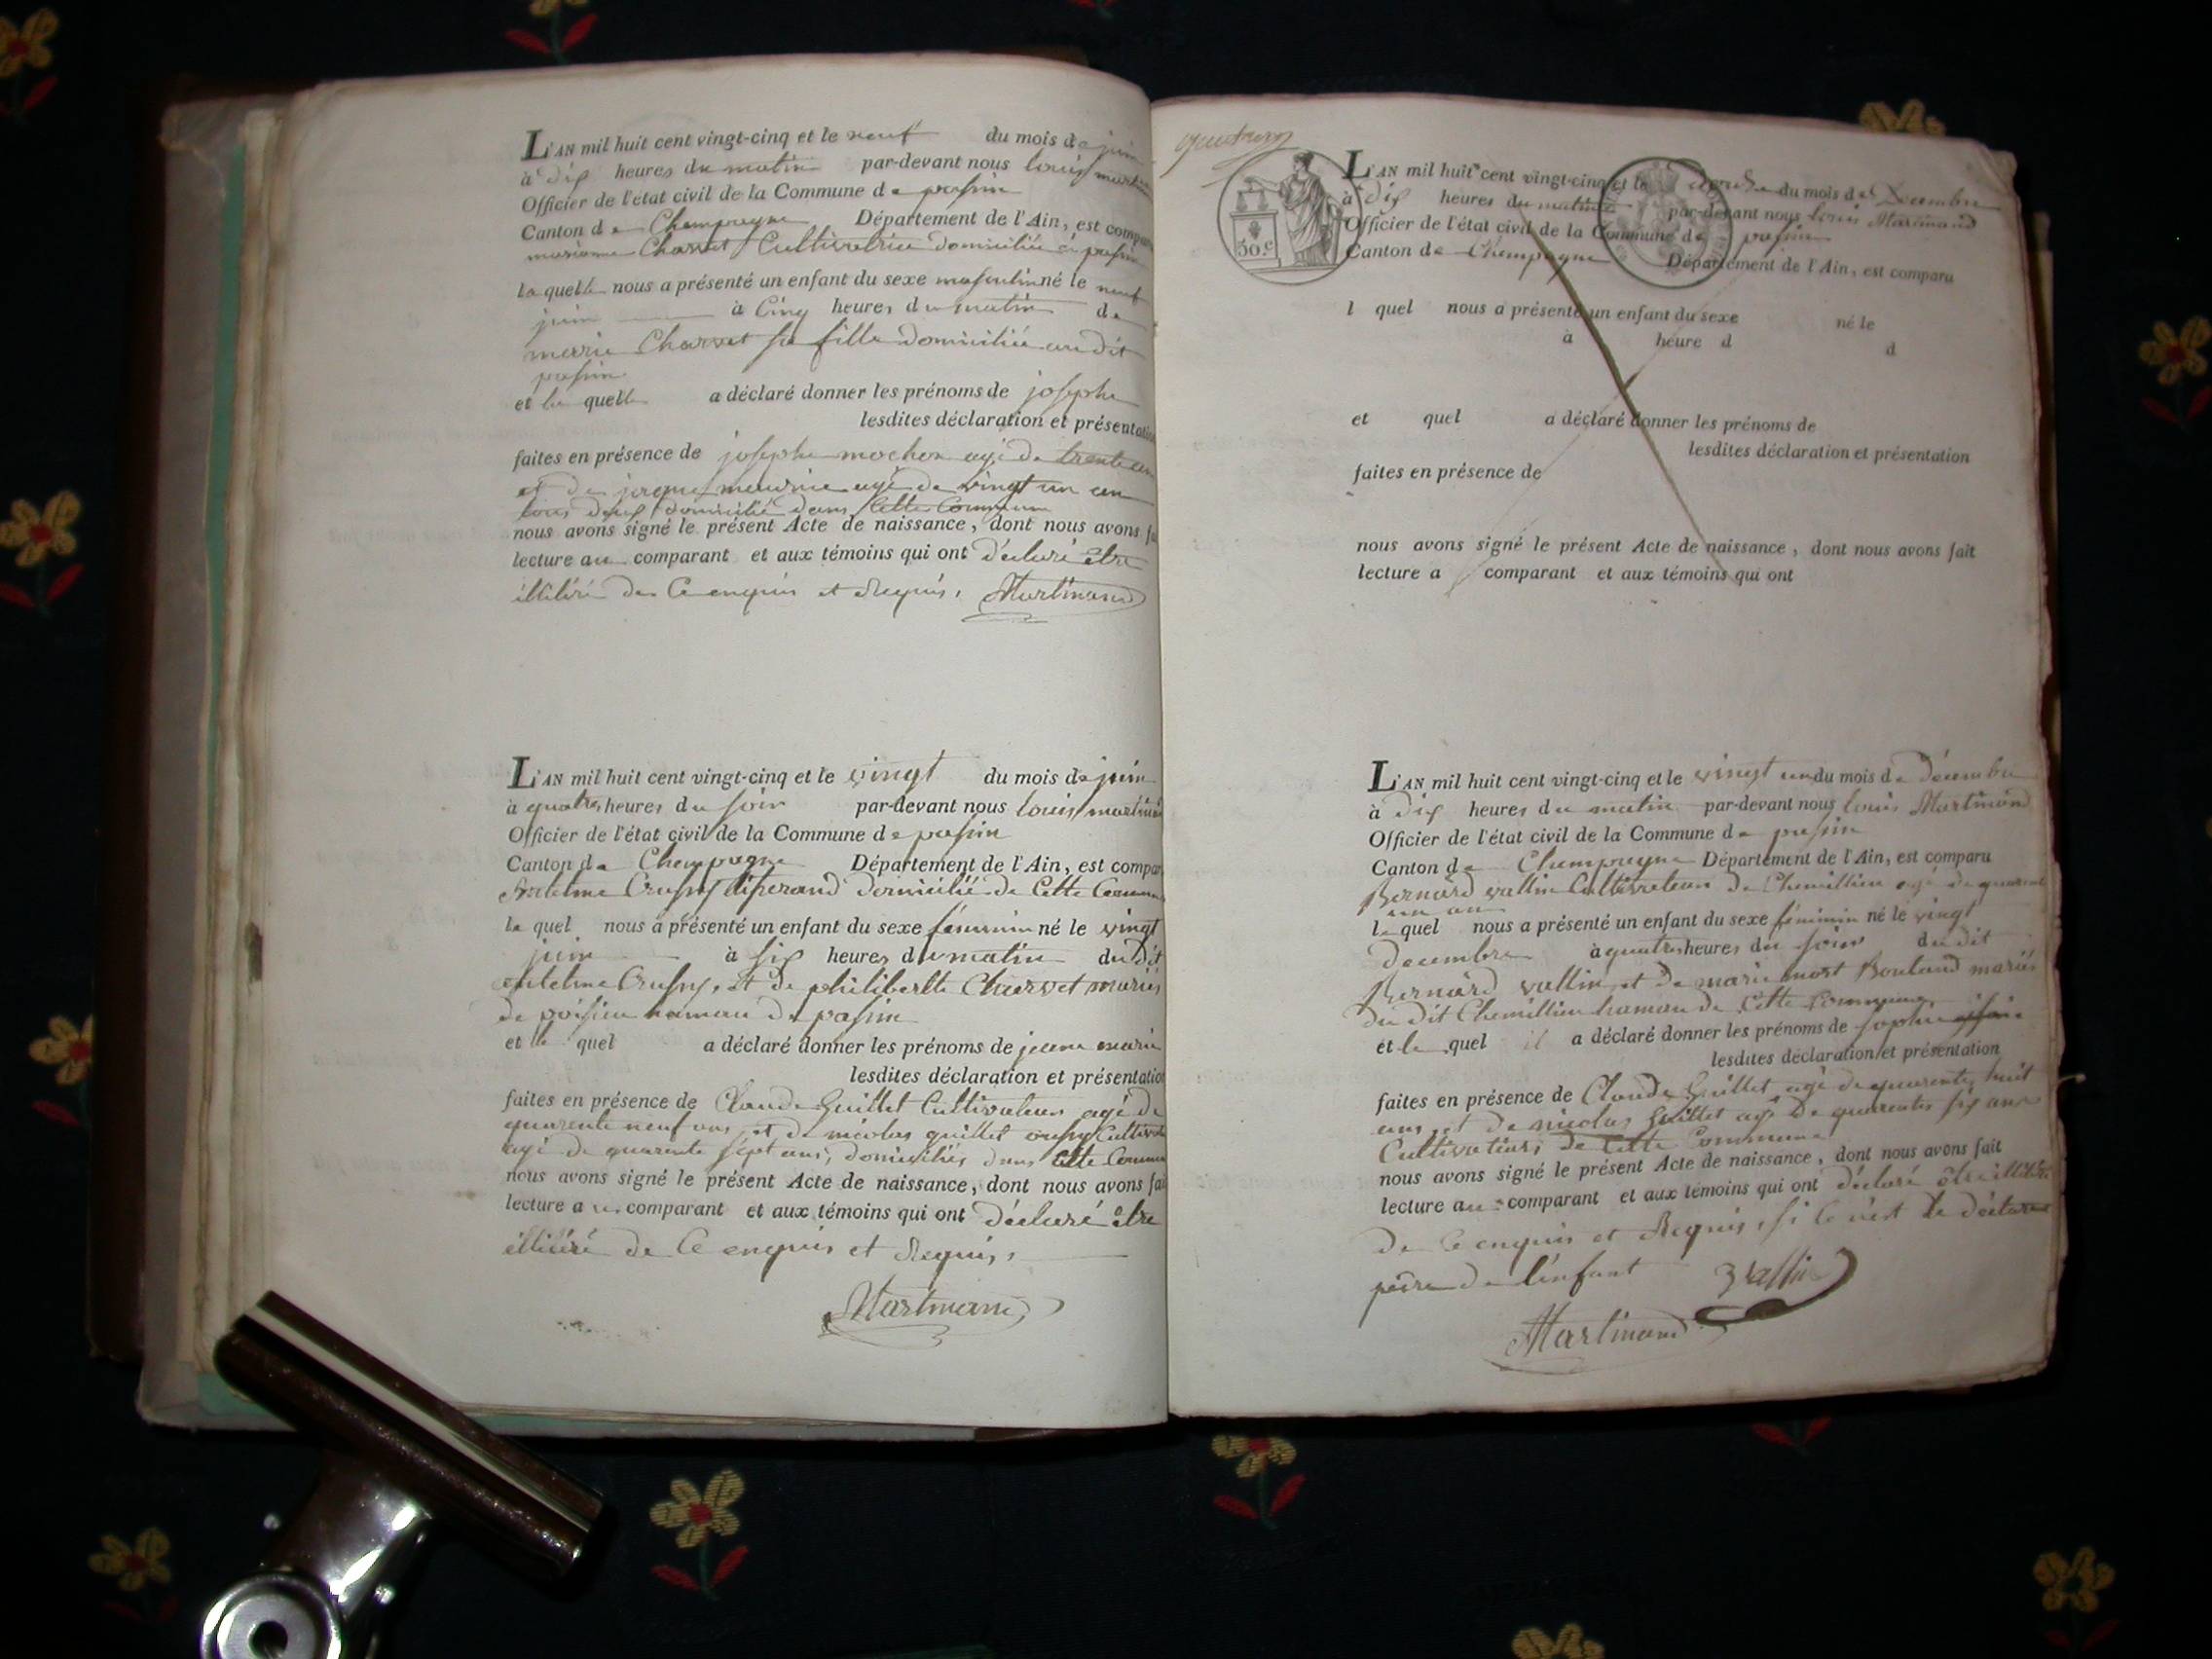 L'AN mil huit cent vingt-cinq et le neuf du mois de juin
à dix heures du matin par-devant nous louis
Officier de l'état civil de la Commune de passin
Canton de Champagne Département de l'Ain, est
marianne Charvet Cultivatrice domiciliée à passin
laquelle nous a présenté un enfant du sexe masculin né le neuf
juin à Cinq heures du matin de
marie Charvet sa fille domiciliée au dit
passin
et la quelle a déclaré donner les prénoms de josephe
lesdites déclaration et
faites en présence de josephe mochon agé de trente
et de jaque meurine agé de vingt un an
tous deux domicilié dans Cette Commune
nous avons signé le présent Acte de naissance, dont nous avons
lecture au comparant et aux témoins qui ont déclaré être
illitéré de Ce enquis et Requis. Martinand
L'AN mil huit cent vingt-cinq et le vingt du mois de juin
à quatre heures du soir par-devant nous louis
Officier de l'état civil de la Commune de passin
Canton de Champagne Département de l'Ain, est
domicilié de Cette
le quel nous a présenté un enfant du sexe féminin né le vingt
juin à six heures du matin du dit
et de philiberte Charvet mariés
de poisieu hamau de passin
et le quel a déclaré donner les prénoms de jeanne marie
lesdites déclaration et présentation
faites en présence de Claude Guillet Cultivateur agé de
quarente neuf ans et de nicolas guillet
agé de quarente sept ans, domiciliés dans Cette
nous avons signé le présent Acte de naissance, dont nous avons
lecture au comparant et aux témoins qui ont déclaré être
illitéré de Ce enquis et Requis,
Martinand
30.c
L'AN mil huit cent vingt-cinq et le du mois de Décembre
à dix heures du matin par-devant nous louis Martinand
Officier de l'état civil de la Commune de passin
Canton de Champagne Département de l'Ain, est comparu
l quel nous a présenté un enfant du sexe né le
à heure d d
et quel a déclaré donner les prénoms de
lesdites déclaration et présentation
faites en présence de
nous avons signé le présent Acte de naissance, dont nous avons fait
lecture a comparant et aux témoins qui ont
L'AN mil huit cent vingt-cinq et le vingt un du mois de décembre
à dix heures du matin par-devant nous louis Martinand
Officier de l'état civil de la Commune de passin
Canton de Champagne Département de l'Ain, est comparu
Bernard vallin Cultivateur de Chemillieu agé de quarente
un an
le quel nous a présenté un enfant du sexe féminin né le vingt
decembre à quatre heures du soir du dit
Bernard vallin et de marie most Bouland mariés
du dit Chemillieu hamau de Cette Commune
et le quel il a déclaré donner les prénoms de sophie
lesdites déclaration et présentation
faites en présence de Claude Guillet agé de quarente huit
ans et de nicolas Guillet agé de quarente six ans
Cultivateurs de Cette Commune
nous avons signé le présent Acte de naissance, dont nous avons fait
lecture au comparant et aux témoins qui ont déclaré être illitéré
de Ce enquis et Requis, si Ce n'est le
père de l'enfant Vallin
Martinand